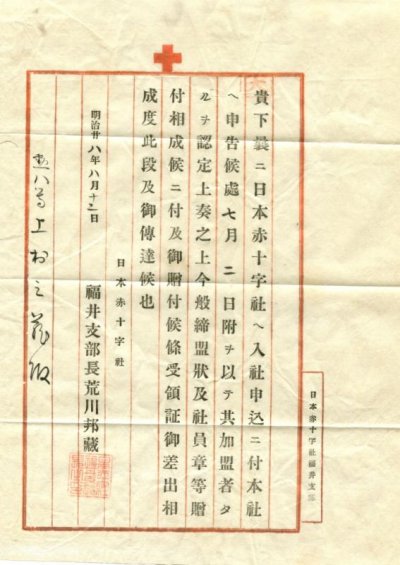 貴下曩ニ日本赤十字社ヘ入社申込ニ付本社
ヘ申告候處七月二日附ヲ以テ其加盟者タ
ルヲ認定上奏之上今般締盟狀及社員章等贈
付相成候ニ付及御贈付候條受領証御差出相
成度此段及御傳達候也
日本赤十字社
明治廿八年八月十二日
福井支部長荒川邦藏
上
殿
日本赤十字社福井支部